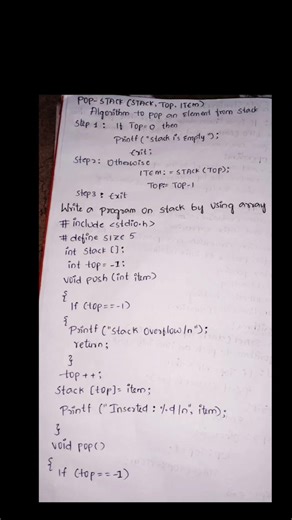 POP-STACK (STACK, TOP, ITEM)
Algorithm to pop an Element from Stack
Step 1: If Top=0 then
Printf ("Stack is Empty");
Exit;
Step 2: Otherwise
ITEM: = STACK (TOP);
TOP= TOP-1
Step 3: Exit
Write a program on stack by using array
# include <stdio.h>
# define size 5
int stack [];
int top=-1;
void push (int item)
{
If (top==-1)
{
Printf ("stack Overflow/n");
return;
}
top++;
Stack [top]= item;
Printf ("Inserted: %d/n", item);
}
void pop()
{
If (top==-1)